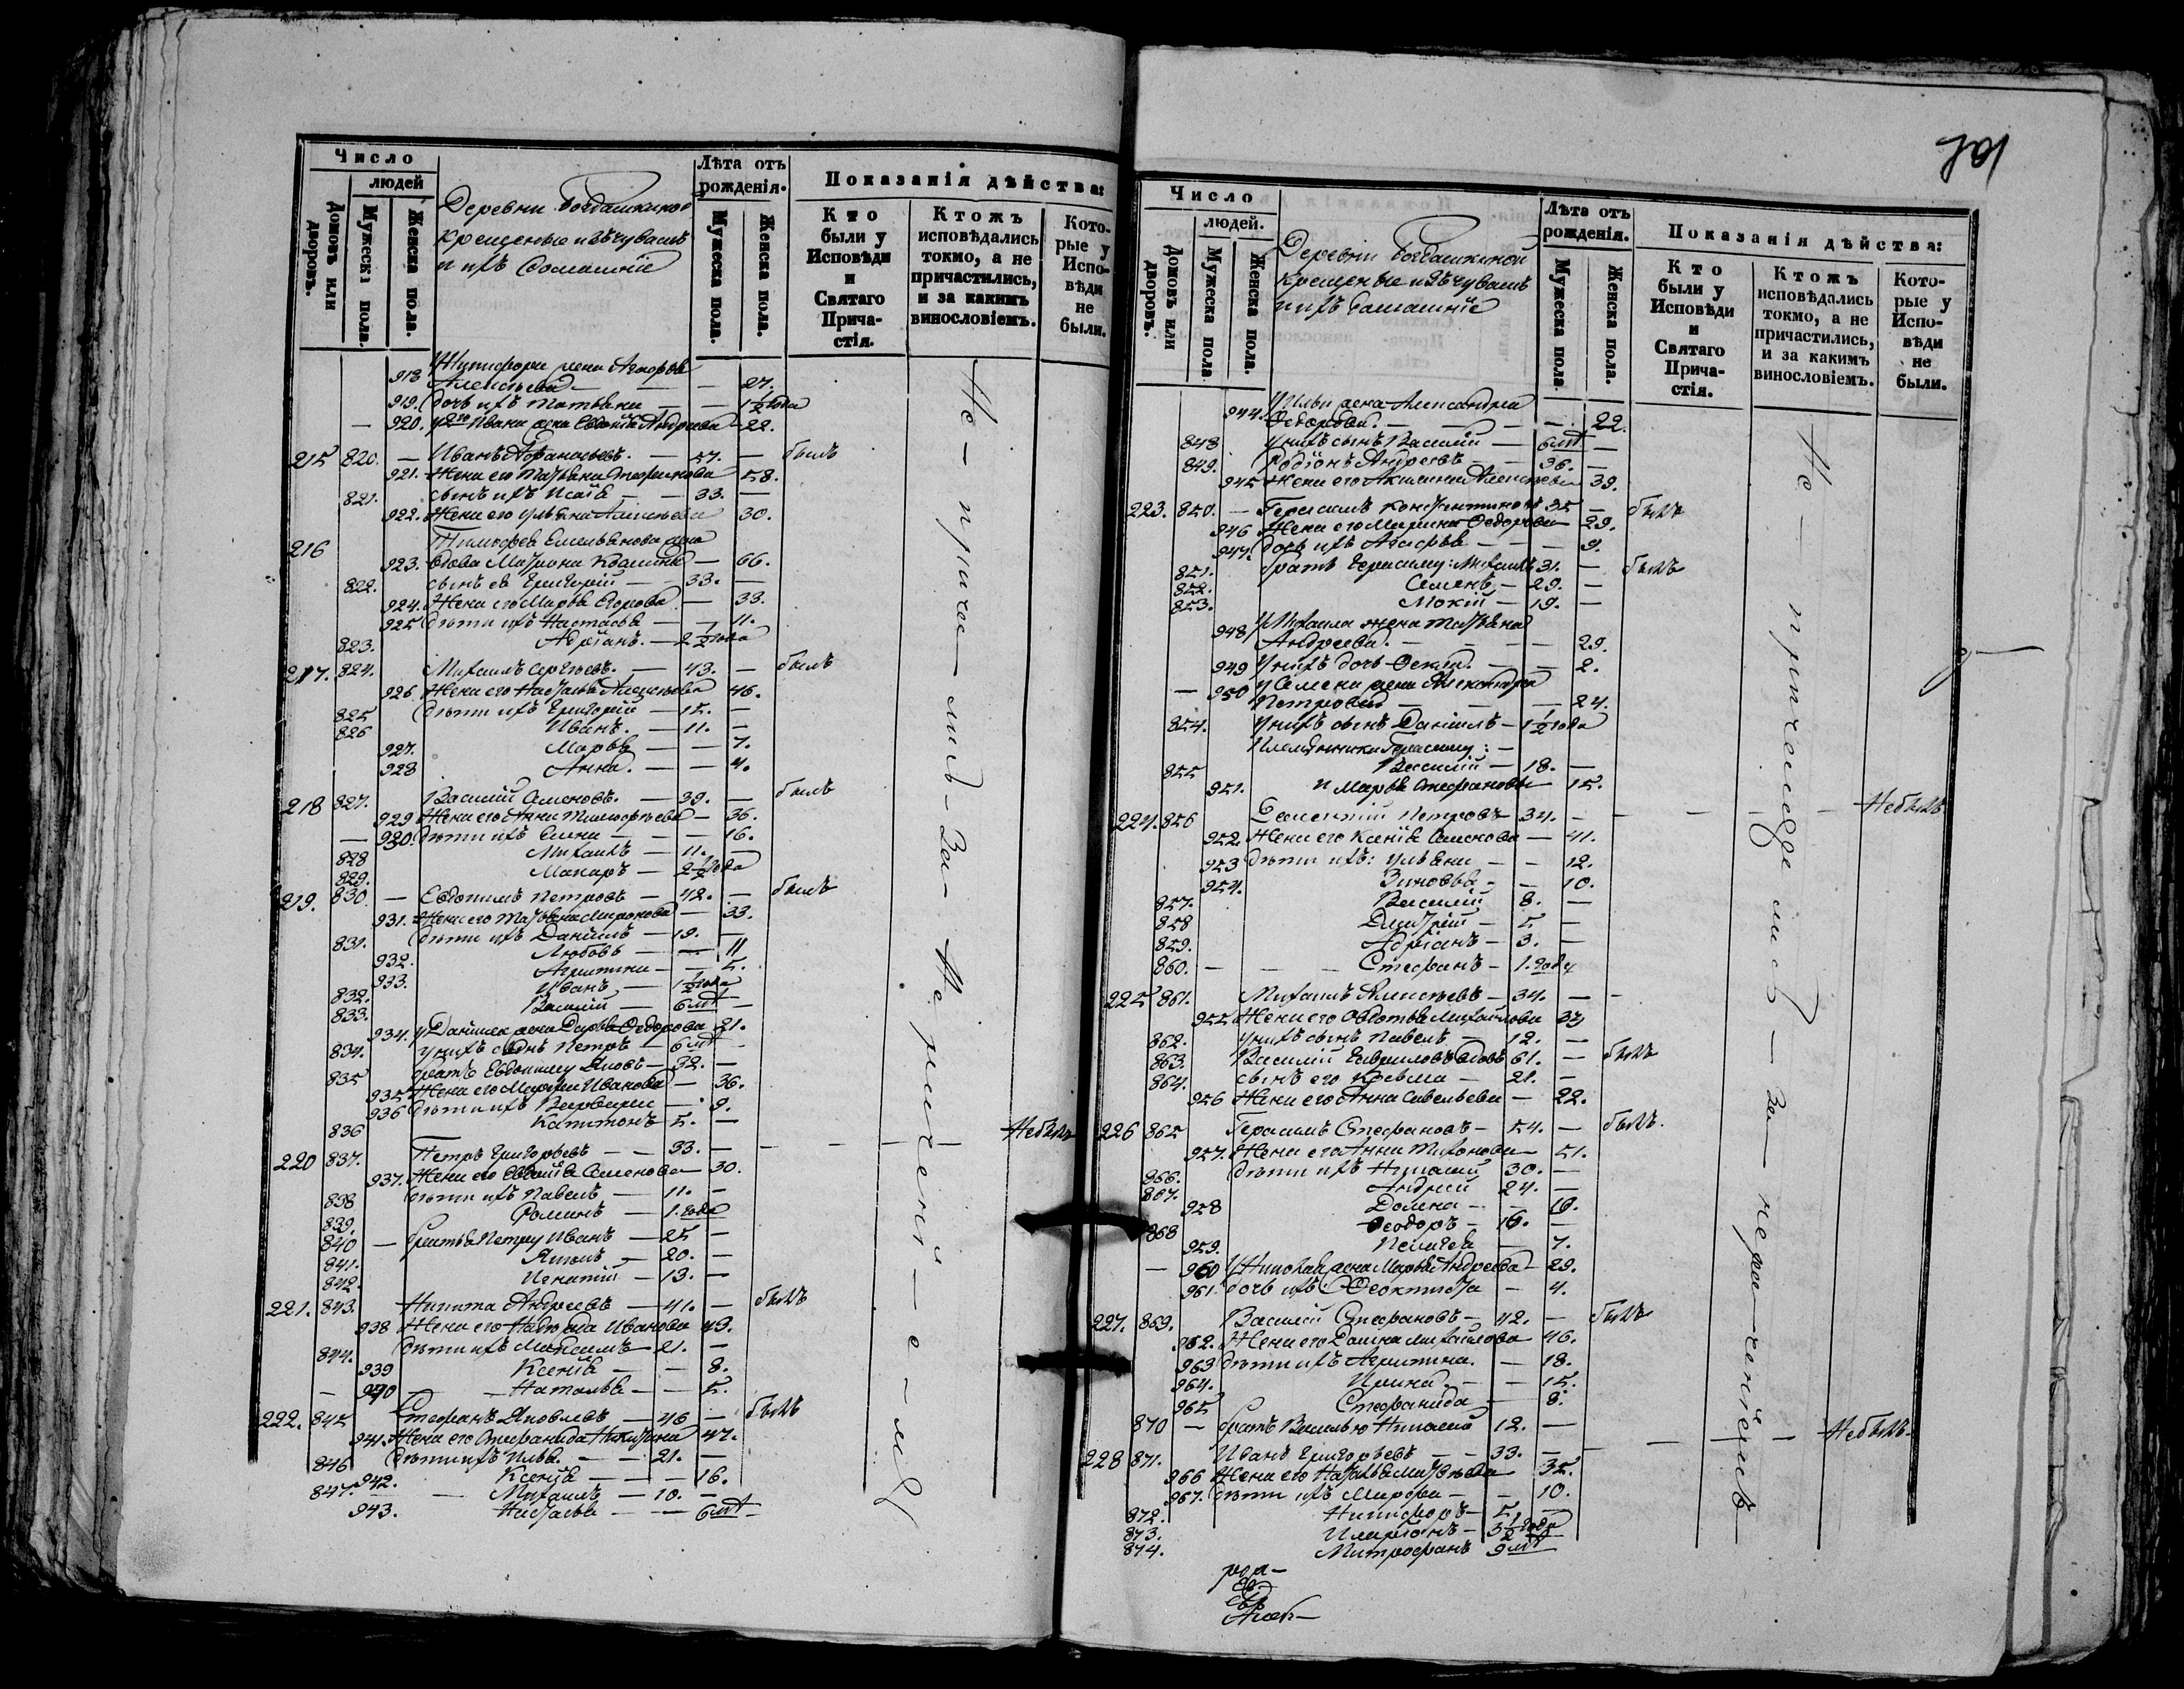 Число
людей
Домовъ или дворовъ.
Мужеска пола.
Женска пола.
Деревни Богдашкиной
крещеные изъ чувашъ
и ихъ домашніе
Лѣта отъ рожденія.
Мужеска пола.
Женска пола.
Показанія дѣйства:
Кто были у Исповѣди и Святаго Причастія.
Ктожъ исповѣдались токмо, а не причастились, и за какимъ винословіемъ.
Которые у Исповѣди не были.
918 Никифора жена
Алексѣева — — 27.
919. дочь ихъ Татьяна — — 1½ года
— 920. у Ивана жена Евдокія Андреева — 22.
215 820. — Иванъ Афанасьевъ. — 57. — былъ
921. Жена его Татьяна Стефанова 58.
821. сынъ ихъ Исаія — — 33. —
922. Жена его Ульяна Алексѣева 30.
216 Тимофея Емельянова жена
923. вдова Матрона Козмина — 66.
822. сынъ ея Григорій — — 33. —
924. Жена его Марѳа Егорова — 33.
925 дѣти ихъ Настасья — — 11.
823. Адріанъ. — 2½ года
217. 824. Михаилъ Сергѣевъ. — 43. — былъ
926 Жена его Настасья 46.
825 дѣти ихъ Григорій — 15. —
826 Иванъ. — 11. —
927. Марья — — 7.
928 Анна. — — 4.
218 827. Василій Семеновъ. — 39. — былъ
929 Жена его Анна Тимофѣева — 36.
— 930. дѣти ихъ Елена — — 16.
828 Михаилъ — 11. —
829. Макаръ — 2½ года
219. 830. — Евдокимъ Петровъ — 42. — былъ
931. Жена его Татьяна Миронова — 33.
831. дѣти ихъ Даніилъ — 19. —
932. Любовь — — 11
933. Агриппина — — 5.
832. Иванъ — 1½ года
833. Василій — 6 мѣ —
934. у Даніила жена Дарья Ѳедорова 21.
834. у нихъ сынъ Петръ — 6 мѣ —
835 братъ Евдокиму Яковъ — 32. —
935 Жена его Марина Иванова — 36.
936 дѣти ихъ Варвара — — 9.
836 Капитонъ — 5. —
220 837. Петръ Григорьевъ — — 33. — — — — Небылъ
937. Жена его Евдокія Семенова — 30.
838 дѣти ихъ Павелъ — 11. —
839. Романъ — 1. года
840 — братья Петру Иванъ — 25 —
841. Якимъ — 20. —
842. Игнатій — 13. —
221. 843. Никита Андреевъ — 41. — былъ
938 Жена его Надежда Иванова 43.
844. дѣти ихъ Максимъ — 21. —
939 Ксенія — — 8.
— 940 — — Наталья — — 5.
222. 845 Стефанъ Яковлевъ — 46 — былъ
941. Жена его Стефанида Никитина 47.
846 дѣти ихъ Илья. — — 21. —
942. Ксенія — — — 16.
847. — Михаилъ — 10. —
943. Настасья — — 6 мѣ —
Не — причас — лись — За — Не — раченіе — мъ
Число
людей.
Домовъ или дворовъ.
Мужеска пола
Женска пола.
Деревни Богдашкиной
крещеные изъ чувашъ
и ихъ домашніе
Лѣта отъ рожденія.
Мужеска пола
Женска пола.
Показанія дѣйства:
Кто были у Исповѣди и Святаго Причастія.
Ктожъ исповѣдались токмо, а не причастились, и за какимъ винословіемъ.
Которые у Исповѣди не были.
944. у Ильи жена Александра
Ѳедорова. — — — 22.
848 у нихъ сынъ Василій — 6 мѣ —
849. Родіонъ Андреевъ — 36. —
945 Жена его Акилина Алексѣева 39.
223. 850. — Герасимъ Константиновъ 35 — былъ
946 Жена его Марина Ѳедорова — 29.
947. дочь ихъ Агафья — — — 9.
851. братья Герасиму: Михаилъ 31. — былъ
852. Семенъ — 29. —
853. Мокій — 19. —
948 у Михаила жена Татьяна
Андреева. — — — 29.
949 у нихъ дочь Ѳекла. — — 2.
— 950 у Семена жена Александра
Петрова — — — 24.
854. у нихъ сынъ Даніилъ — 1½ года
Племянники Герасиму: —
855 Василій — 18. —
951. и Марья Стефановы — 15.
224. 856 Петровъ — 34. — — — — — Небылъ
952. Жена его Ксенія Семенова — 41.
953 дѣти ихъ: Ульяна — — 12.
954. Зиновья — — 10.
857. Василій 8. —
858 Дмитрій — 5 —
859. Адріанъ — 3. —
860. — — — Стефанъ — 1. года
225 861. Михаилъ Алексѣевъ — 34. — —
955 Жена его Овдотья Михайлова 33
862. у нихъ сынъ Павелъ — 12. —
863. Василій Гавриловъ вдовъ 61. — былъ
864. сынъ его Козьма — 21. —
956 Жена его Анна Савельева — 22.
226 865 Герасимъ Стефановъ — 54. — былъ.
957. Жена его Анна Тихонова — 51.
866. дѣти ихъ Николай 30. —
867. Андрей 24. —
958 Домна — — 16.
868 Ѳеодоръ — 16. —
959. Пелагея — 7.
— 960 у Николая жена Марья Андреева — 29.
961. дочь ихъ Ѳеоктиста — 4.
227. 869. Василій Стефановъ — 42. — былъ
962. Жена его Домна Михайлова 46.
963 дѣти ихъ Агриппина. — 18.
964. Ирина. — — 15.
965 Стефанида — 8.
870 — братъ Василью Николай 12. —
228 871. Иванъ Григорьевъ — — 33. — — — — Небылъ.
966 Жена его Наталья Матвѣева 35.
967. дѣти ихъ Марфа — — 10.
872. Никифоръ — 5 —
873. Иларіонъ — 3½ года
874. Митрофанъ 9 мѣ
Не — причащались — За — нераченіемъ